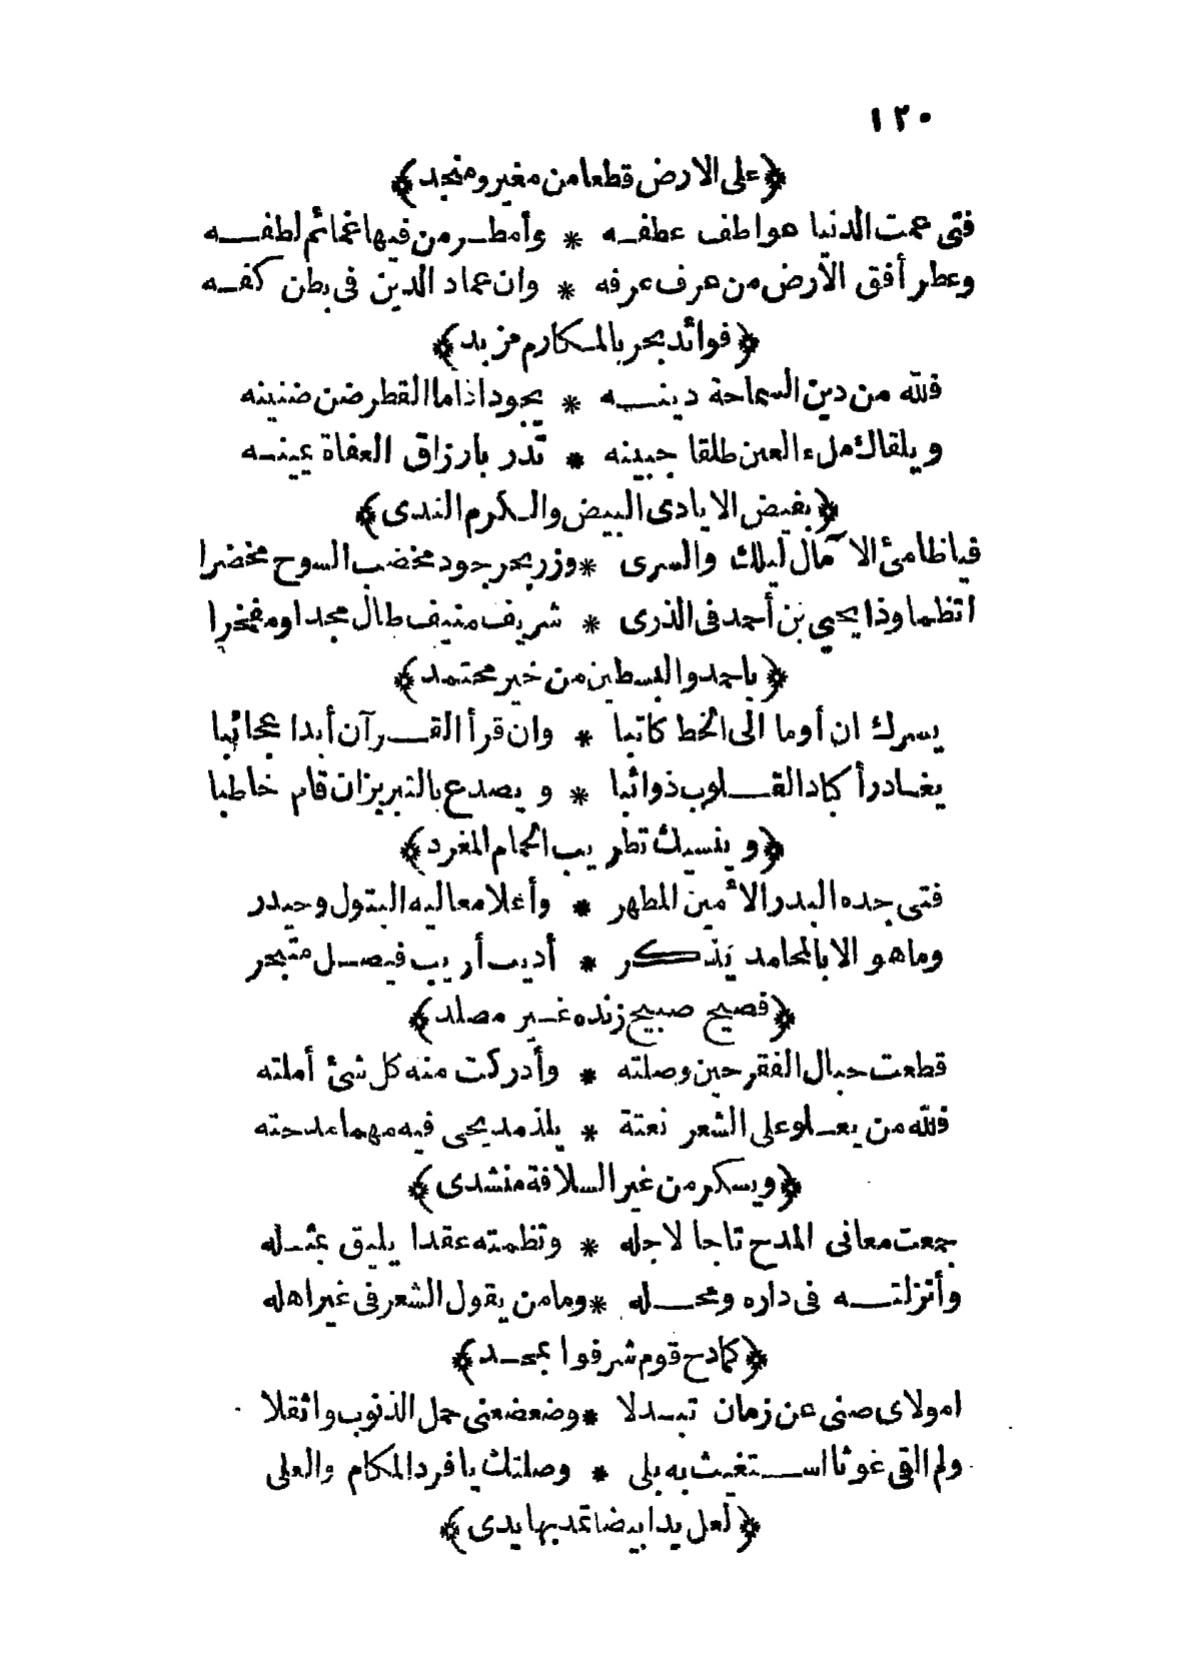 ١٢٠
﴿على الارض قطعا من مغير ومنجد﴾
فتى عمت الدنيا عواطف عطفه * وأمطر من فيها غمائم لطفه
وعطر أفق الأرض من عرف عرفه * وان عماد الدين فى بطن كفه
﴿فوائد بحر بالمكارم مزبد﴾
فلله من دين السماحة دينه * يجود اذا ما القطر ضن ضنينه
ويلقاك ملء العين طلقا جبينه * تدر بارزاق العفاة يمينه
﴿بفيض الايادى البيض والكرم الندى﴾
فيا ظامئ الآمال ليلك والسرى * وزر بحر جود مخضب السوح مخضرا
اتظما وذا يحيى بن أحمد فى الذرى * شريف منيف طال مجدا ومفخرا
﴿باحمد والبسطين من خير محتمد﴾
يسرك ان أوما الى الخط كاتبا * وان قرأ القرآن أبدا عجائبا
يغادر أكباد القلوب ذوائبا * ويصدع بالتبريز ان قام خاطبا
﴿وينسيك تطريب الحمام المغرد﴾
فتى جده البدر الأمين المطهر * وأعلا معاليه البتول وحيدر
وما هو الا بالمحامد يذكر * أديب أريب فيصل متبحر
﴿فصيح صبيح زنده غير مصلد﴾
قطعت حبال الفقر حين وصلته * وأدركت منه كل شئ أملته
فلله من يعلو على الشعر نعتة * يلذ مديحى فيه مهما مدحته
﴿ويسكر من غير السلافة منشدى﴾
جمعت معانى المدح تاجا لاجله * ونظمته عقدا يليق بمثله
وأنزلته فى داره ومحله * وما من يقول الشعر فى غير اهله
﴿كمادح قوم شرفوا بمحمد﴾
امولاى صنى عن زمان تبدلا * وضعضعنى حمل الذنوب واثقلا
ولم القى غوثا استغيث به بلى * وصلتك يا فرد المكام والعلى
﴿لعل يدا بيضا تمد بها يدى﴾